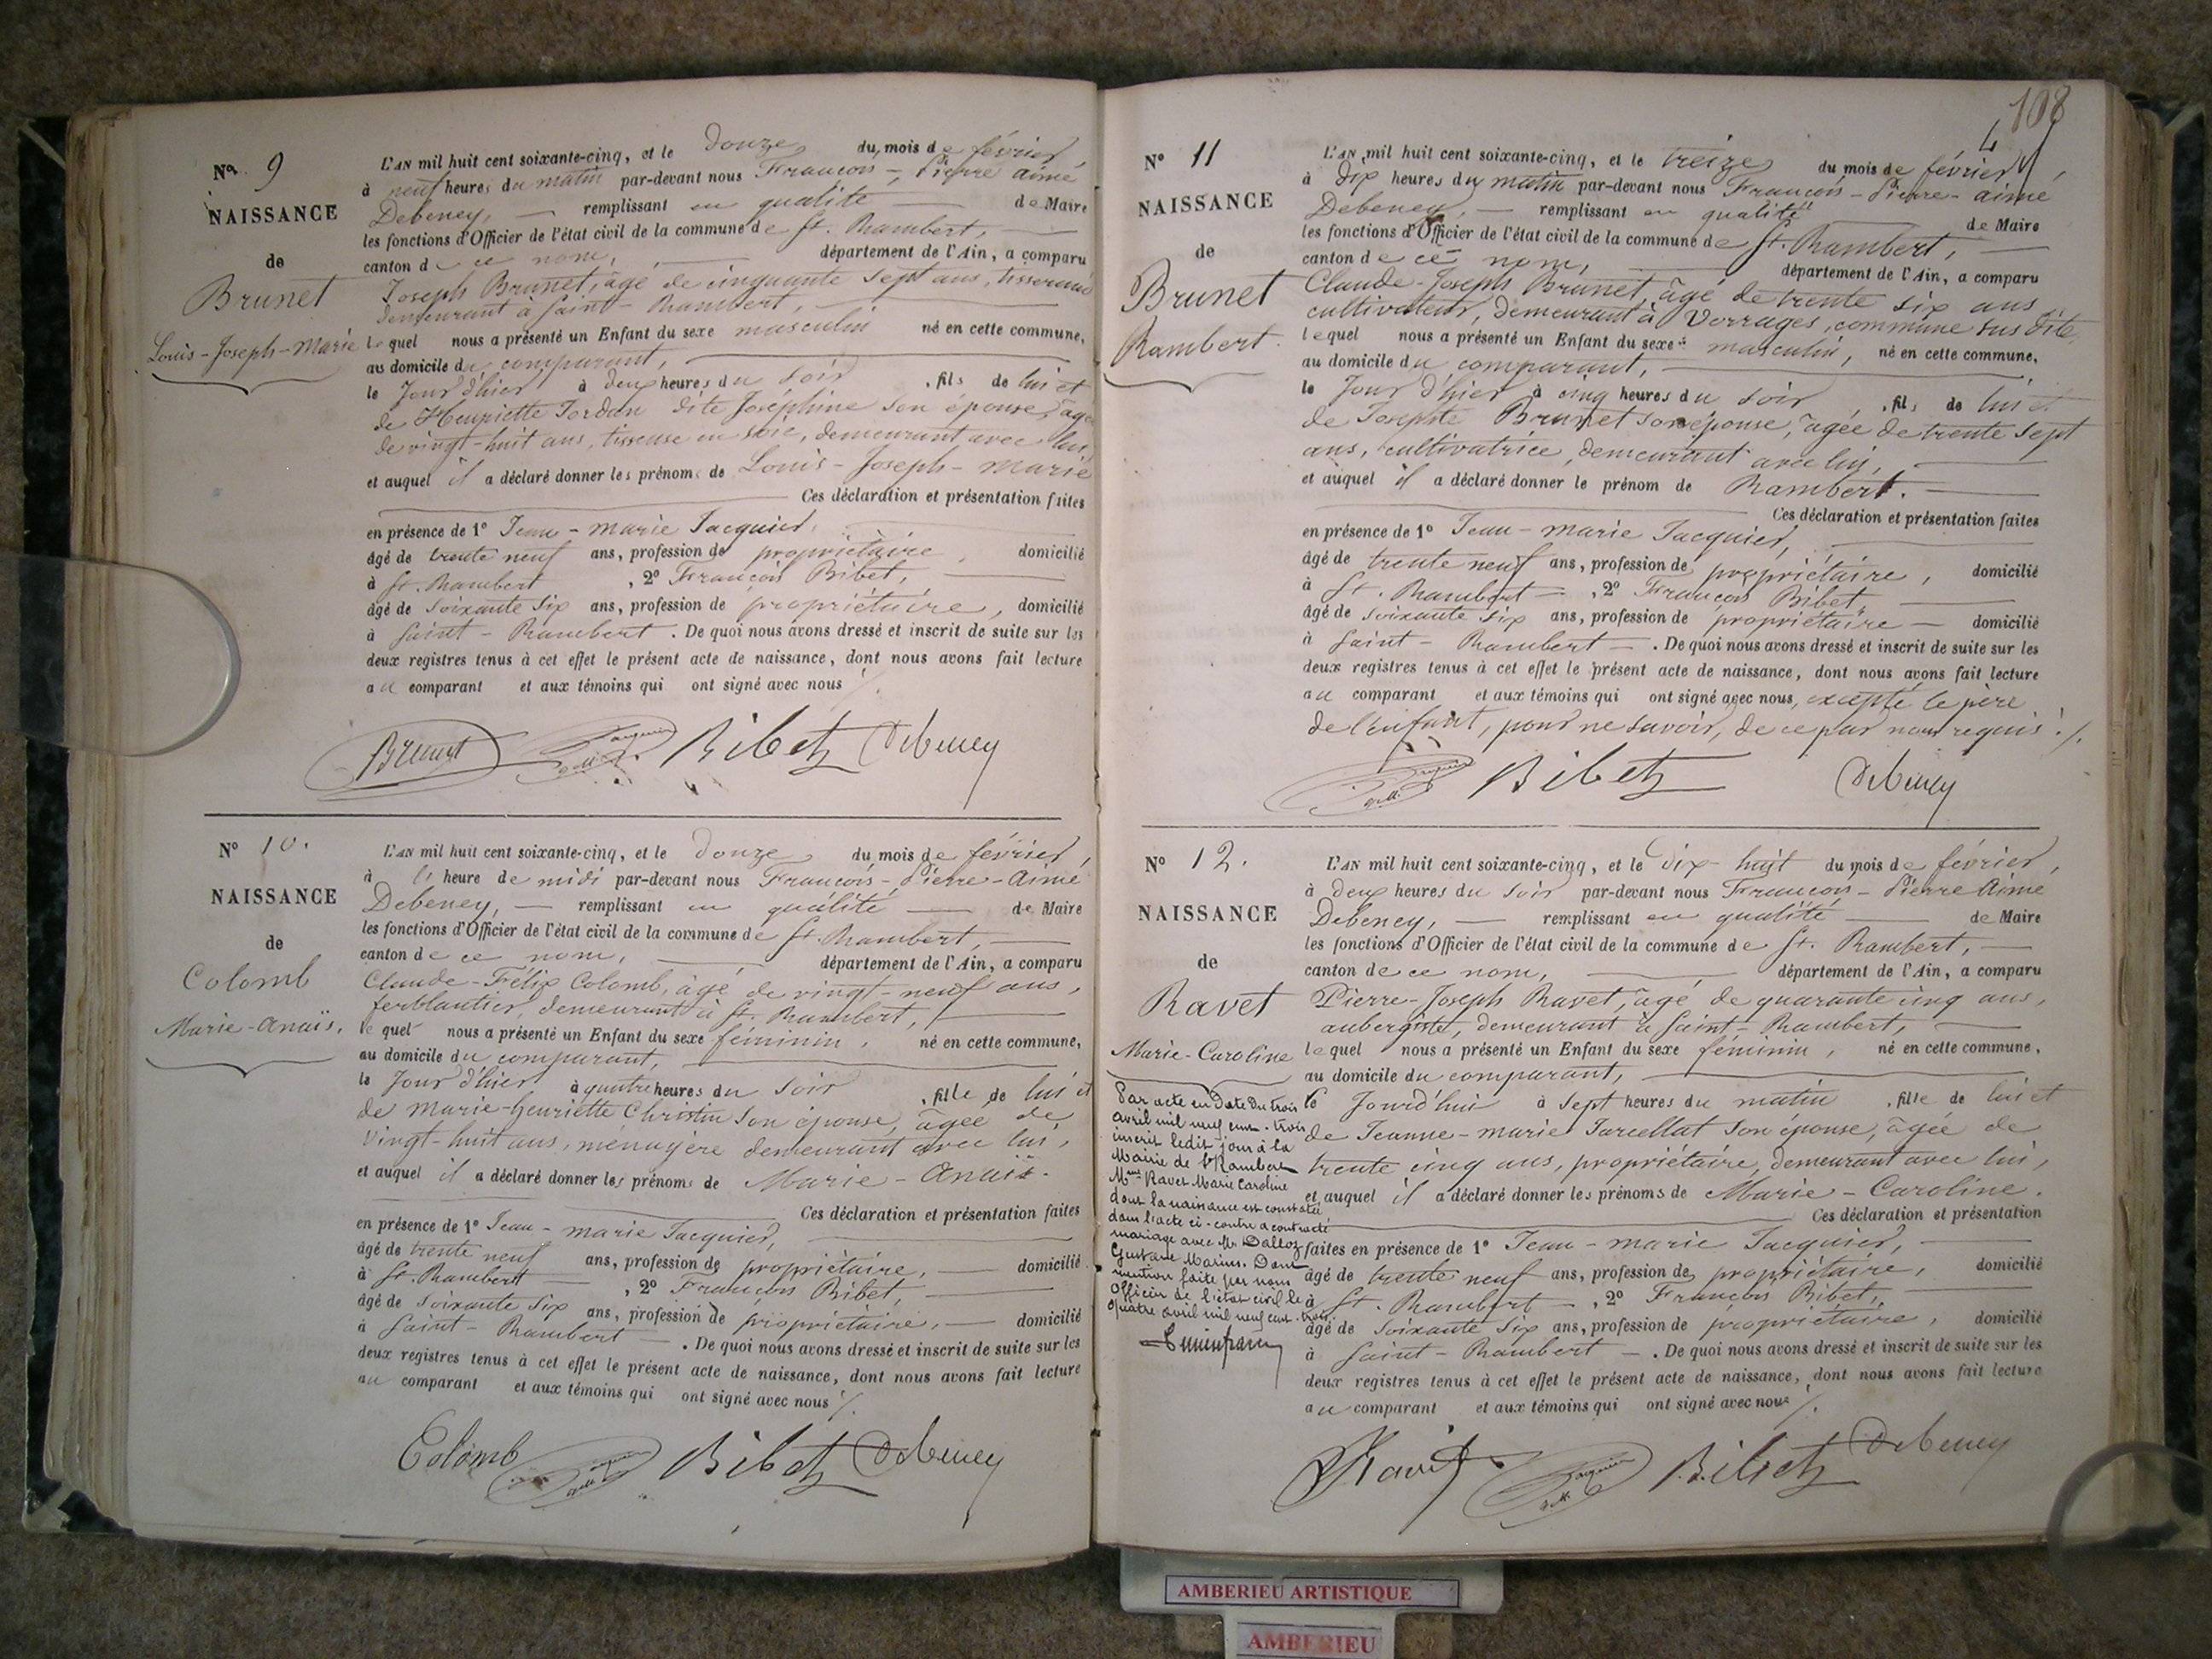 Nº 9
NAISSANCE
de
Brunet
Louis-Joseph-Marie
L'AN mil huit cent soixante-cinq, et le douze du mois de février,
à neuf heures du matin par-devant nous François-Pierre aimé
Debeney, remplissant en qualité de Maire
les fonctions d'Officier de l'état civil de la commune de St. Rambert,
canton de ce nom, département de l'Ain, a comparu
Joseph Brunet, âgé de cinquante sept ans, tisserand
demeurant à Saint-Rambert,
lequel nous a présenté un Enfant du sexe masculin né en cette commune,
au domicile du comparant,
le Jour d'hier à deux heures du soir, fils de lui et
de Henriette Jordan dite Joséphine son épouse, âgée
de vingt-huit ans, tisseuse en soie, demeurant avec lui,
et auquel il a déclaré donner les prénoms de Louis-Joseph-Marie
Ces déclaration et présentation faites
en présence de 1º Jean-marie Jacquier,
âgé de trente neuf ans, profession de propriétaire, domicilié
à St. Rambert, 2º François Bibet,
âgé de soixante six ans, profession de propriétaire, domicilié
à Saint-Rambert. De quoi nous avons dressé et inscrit de suite sur les
deux registres tenus à cet effet le présent acte de naissance, dont nous avons fait lecture
au comparant et aux témoins qui ont signé avec nous ./.
Brunet Jacquier Bibet Debeney
Nº 10.
NAISSANCE
de
Colomb
Marie-Anaïs.
L'AN mil huit cent soixante-cinq, et le douze du mois de février,
à heure de midi par-devant nous François-Pierre-Aimé
Debeney, remplissant en qualité de Maire
les fonctions d'Officier de l'état civil de la commune de St. Rambert,
canton de ce nom, département de l'Ain, a comparu
Claude-Félix Colomb, âgé de vingt-neuf ans,
ferblantier, demeurant à St. Rambert,
lequel nous a présenté un Enfant du sexe féminin, né en cette commune,
au domicile du comparant,
le Jour d'hier à quatre heures du soir, fille de lui et
de Marie-henriette Christin son épouse, âgée de
vingt-huit ans, ménagère demeurant avec lui,
et auquel il a déclaré donner les prénoms de Marie-Anaïs.
Ces déclaration et présentation faites
en présence de 1º Jean-marie Jacquier,
âgé de trente neuf ans, profession de propriétaire, domicilié
à St. Rambert, 2º François Bibet,
âgé de soixante six ans, profession de propriétaire, domicilié
à Saint-Rambert. De quoi nous avons dressé et inscrit de suite sur les
deux registres tenus à cet effet le présent acte de naissance, dont nous avons fait lecture
au comparant et aux témoins qui ont signé avec nous ./.
Colomb Jacquier Bibet Debeney
108
Nº 11
NAISSANCE
de
Brunet
Rambert.
L'AN mil huit cent soixante-cinq, et le treize du mois de février,
à dix heures du matin par-devant nous François-Pierre-aimé
Debeney, remplissant en qualité de Maire
les fonctions d'Officier de l'état civil de la commune de St. Rambert,
canton de ce nom, département de l'Ain, a comparu
Claude-Joseph Brunet, âgé de trente six ans
cultivateur, demeurant à Vorrages, commune sus dite,
lequel nous a présenté un Enfant du sexe masculin, né en cette commune,
au domicile du comparant,
le Jour d'hier à cinq heures du soir, fils de lui et
de Josephte Brunet son épouse, âgée de trente sept
ans, cultivatrice, demeurant avec lui,
et auquel il a déclaré donner le prénom de Rambert.
Ces déclaration et présentation faites
en présence de 1º Jean-marie Jacquier,
âgé de trente neuf ans, profession de propriétaire, domicilié
à St. Rambert, 2º François Bibet,
âgé de soixante six ans, profession de propriétaire domicilié
à Saint-Rambert. De quoi nous avons dressé et inscrit de suite sur les
deux registres tenus à cet effet le présent acte de naissance, dont nous avons fait lecture
au comparant et aux témoins qui ont signé avec nous, excepté le père
de l'enfant, pour ne savoir, de ce par nous requis ./.
Jacquier Bibet Debeney
Nº 12.
NAISSANCE
de
Ravet
Marie-Caroline
Par acte en Date du trois
avril mil neuf cent-trois
inscrit ledit jour à la
Mairie de St Rambert
Mme Ravet Marie Caroline
dont la naissance est constatée
dans l'acte ci-contre a contracté
mariage avec Mr Dalloz
Gustave Marius. Dont
mention faite par nous
officier de l'état civil le
quatre avril mil neuf cent-trois.
L'AN mil huit cent soixante-cinq, et le dix huit du mois de février,
à deux heures du soir par-devant nous François-Pierre Aimé
Debeney, remplissant en qualité de Maire
les fonctions d'Officier de l'état civil de la commune de St. Rambert,
canton de ce nom, département de l'Ain, a comparu
Pierre-Joseph Ravet, âgé de quarante cinq ans,
aubergiste, demeurant à Saint-Rambert,
lequel nous a présenté un Enfant du sexe féminin, né en cette commune,
au domicile du comparant,
le Jourd'hui à sept heures du matin, fille de lui et
de Jeanne-marie Jarcellat son épouse, âgée de
trente cinq ans, propriétaire, demeurant avec lui,
et auquel il a déclaré donner les prénoms de Marie-Caroline.
Ces déclaration et présentation
faites en présence de 1º Jean-marie Jacquier,
âgé de trente neuf ans, profession de propriétaire, domicilié
à St. Rambert, 2º François Bibet,
âgé de soixante six ans, profession de propriétaire, domicilié
à Saint-Rambert. De quoi nous avons dressé et inscrit de suite sur les
deux registres tenus à cet effet le présent acte de naissance, dont nous avons fait lecture
au comparant et aux témoins qui ont signé avec nous ./.
Ravet Jacquier Bibet Debeney
AMBERIEU ARTISTIQUE
AMBERIEU